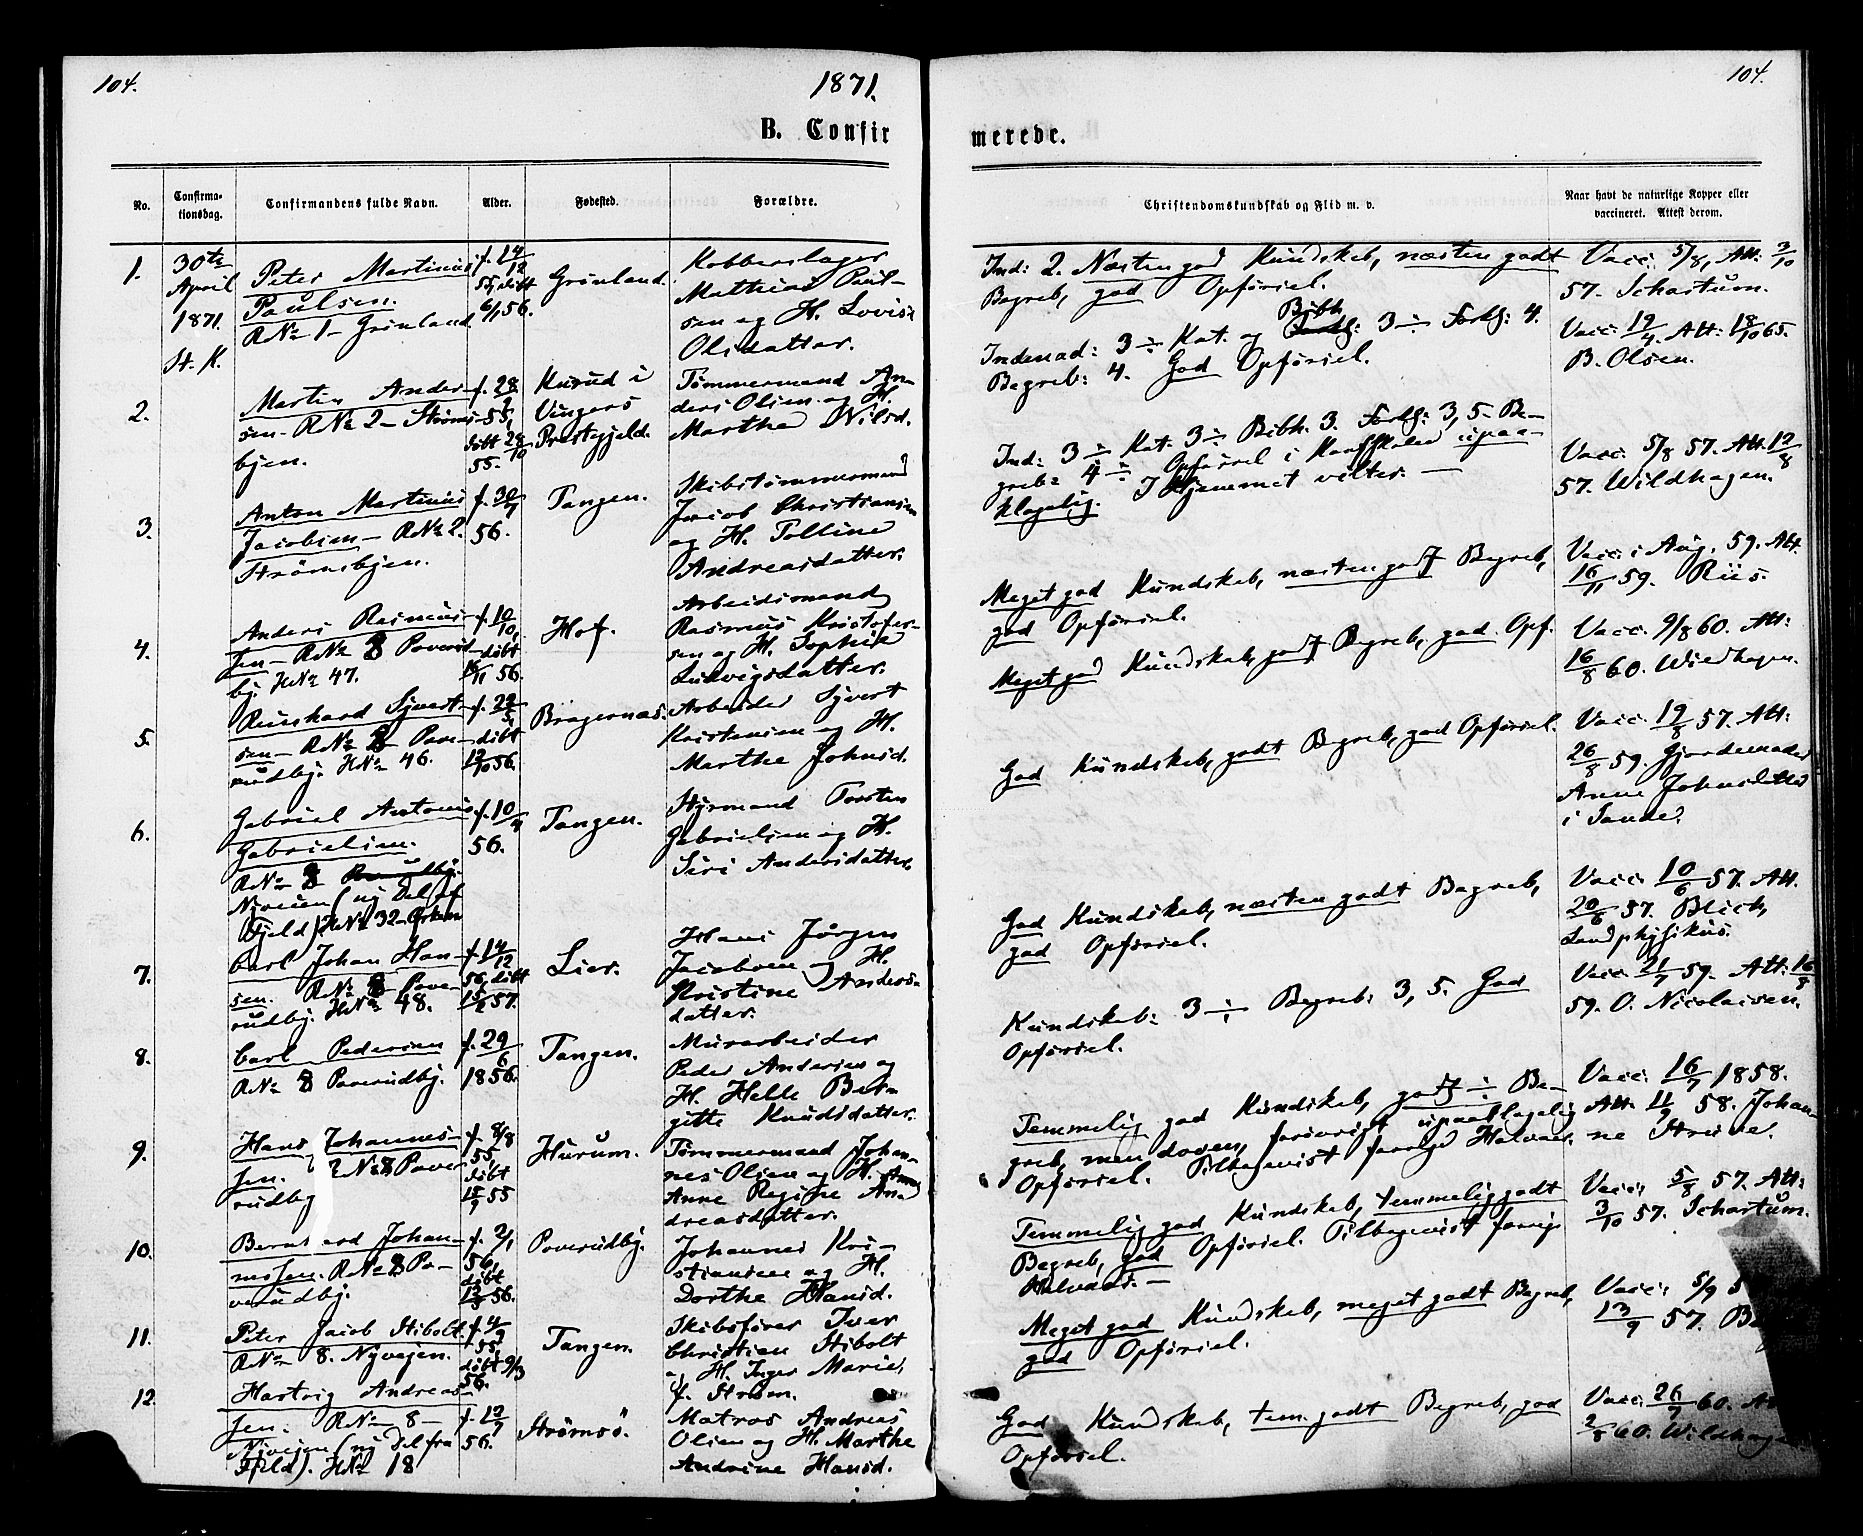 104.
1871.
B. Confir
No.
Confirma-
tionsdag.
Confirmandens fulde Navn.
Alder.
Fødested.
Forældre.
1.
30te
April
1871.
St. K.
Peter Martinius
Paulsen.
R No 1 - Grønland
f. 14/12
55, døbt
6/1 56.
Grønland.
Kobberslager
Mathias Paul-
sen og H. Lovise
Olsdatter.
2.
Martin Ander-
sen - R No 2 - Strøms-
byen.
f. 28/
55,
døbt 28/10
55.
Vingers
Præstegjeld.
Tømmermand An-
ders Olsen og H.
Marthe Nilsd.
3.
Anton Martinius
Jacobsen - R No 2.
Strømsbyen.
f. 30/
56.
Tangen.
Skibstømmermand
Jacob Christiansen
og H. Polline
Andreasdatter.
4.
Anders Rasmus-
sen - R No 8 Poverud-
bj. H No 47.
f. 10/10,
døbt
16/11 56.
Hof.
Arbeidsmand
Rasmus Kristofer-
sen og H. Sophie
Ludvigsdatter.
5.
Reinhard Syvert-
sen - R No 8 - Pove-
rudbj. H No 46.
døbt
12/10 56.
Bragernæs.
Arbeider Syvert
Kristensen og H.
Marthe Johnsd.
6.
Gabriel Antonius
Gabrielsen.
R No 8
Nyveien (ny Del af
Fjeld) H No 32
f. 10/4
56.
Tangen.
Styrmand Torsten
Gabrielsen og H.
Siri Andersdatter.
7.
Carl Johan Han-
sen. R No 8 Pove-
rudbj. H No 48.
f. 14/12
56, døbt
15/2 57.
Lier.
Hans Jørgen
Jacobsen og H.
Kristine Anders-
datter.
8.
Carl Pedersen
R No 8 Poverudbj.
f. 29/6
1856.
Tangen.
Murarbeider
Peder Andersen og
H. Helle Ber-
gitte Knudsdatter.
9.
Hans Johannes-
sen. R No 8 Pove-
rudbj
f. 8/8
55,
døbt
15/9 55
Hurum.
Tømmermand Johan-
nes Olsen og H.
Anne Regine An-
dreasdatter.
10.
Bernhard Johan-
nesen. R No 8 Po-
verudbj.
f. 2/1
56,
døbt
13/3 56.
Poverudbj.
Johannes Kri-
stiansen og H.
Dorthe Hansd.
11.
Peter Jacob Stibolt.
R No 8. Nyvejen.
f. 4/9
55,
døbt 9/3
56.
Tangen.
Skibsfører Iver
Christian Stibolt
og H. Inger Marie,
f. Strøm.
12.
Hartvig Andreas-
sen. R No 8 -
Nyvejen (ny Del fra
Fjeld). H No 18
f. 12/7
56.
Strømsö.
Matros Andreas
Olsen og H. Marthe
Andrine Hansd.
104.
merede.
Christendomskundskab og Flid m. v.
Naar havt de naturlige Kopper eller
vaccineret. Attest derom.
Ind: 2. Næsten god Kundskab, næsten godt
Begreb, god Opførsel.
Vacc. 5/8, Att: 3/10
57. Schartum.
Indenad: 3 ÷ Kat. og Bibh. 3 ÷ Forkl: 4.
Begreb: 4. God Opførsel.
Vacc: 19/4. Att: 18/10 65.
B. Olsen.
Ind: 3 ÷ Kat: 3 ÷ Bibh. 3. Forkl: 3,5 - Be-
greb: 4 ÷ Opførsel i upaa-
klagelig. I Hjemmet vilter. -
Vacc. 5/8 57. Att: 12/8
57. Wildhagen.
Meget god Kundskab, næsten godt Begreb,
god Opførsel.
Vacc. i Aug. 59. Att.
16/11 59. Riis.
Meget god Kundskab, godt Begreb, god Opf.
Vacc. 9/8 60. Att:
16/8 60. Wildhagen.
God Kundskab, godt Begreb, god Opførsel.
Vacc. 19/8 57. Att:
26/8 59. Gjordemoder
Anne Johnsdatter
i Sande.
God Kundskab, næsten godt Begreb,
god Opførsel.
Vacc. 10/6 57. Att.
20/6 57. Blich,
Landphysikus.
Kundskab: 3 ÷ Begreb: 3,5. God
Opførsel.
Vacc. 21/7 59. Att: 16/8
59. O. Nicolaisen.
Temmelig god Kundskab, godt ÷ Be-
greb, men doven, forøvrigt upaaklagelig
Opførsel. Tilbagevist forrige Halvaar.
Vacc. 16/7 1858.
Att. 11/9 58. Johan-
ne Struve.
Temmelig god Kundskab, temmelig godt
Begreb, god Opførsel. Tilbagevist forrige
Halvaar. -
Vacc. 5/8 57. Att:
3/10 57. Schartum.
Meget god Kundskab, meget godt Begreb,
god Opførsel.
Vacc: 5/9 5
13/9 57.
God Kundskab, tem. godt Begreb, god
Opførsel.
Vacc. 26/7 60.
2/8 60. Wildhagen